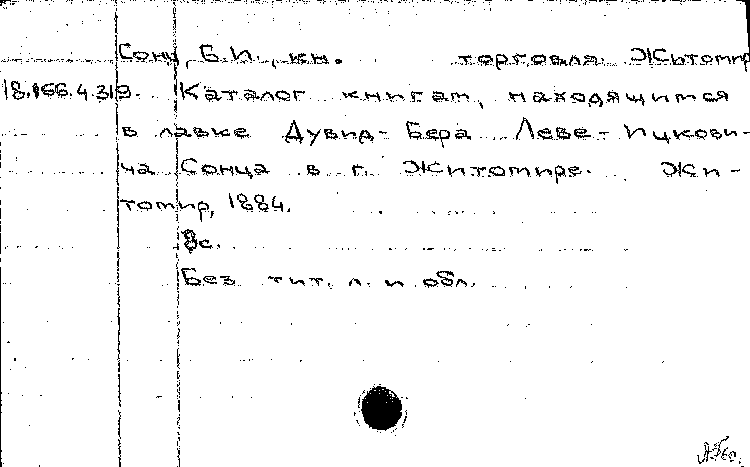 Сонц, Б.И., кн. торговля. Житомир
18.166.4.319. Каталог книгам, находящимся
в лавке Дувид-Бера Леве-Ицкови-
ча Сонца в г. Житомире. Жи-
томир, 1884.
8с.
Без тит. л. и обл.